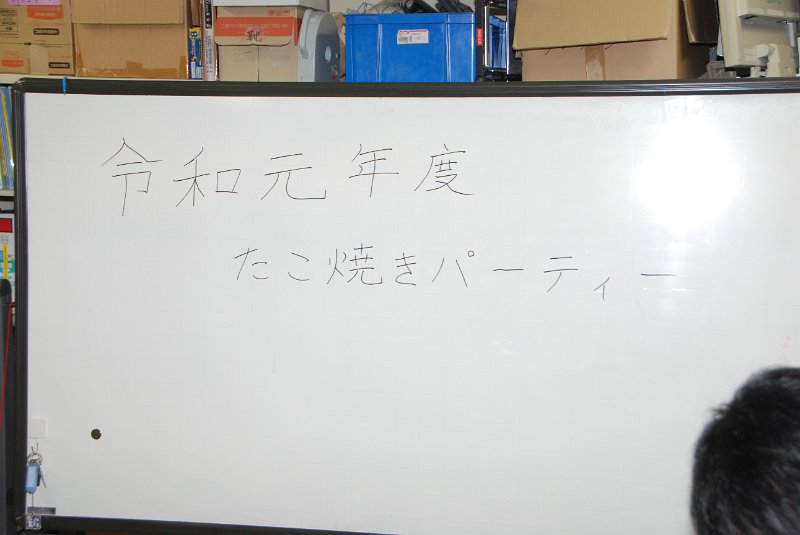 令和元年度
たこ焼きパーティー